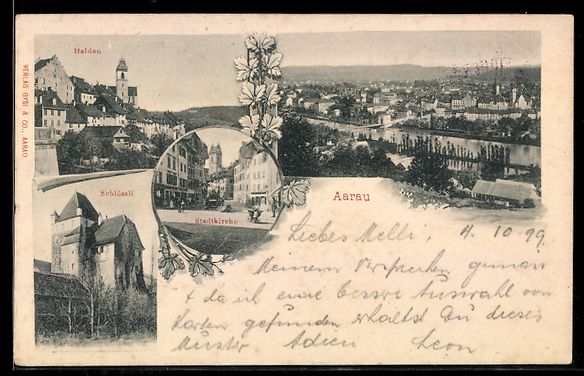 Halden
VERLAG GYSI & CO., AARAU
Schlössli
Stadtkirche
Aarau
Liebes Melli, 4. 10 99
Meinem Versprechen gemäss
& da ich eine bessre Auswahl von
Karten gefunden erhältst Du dieses
Muster Adieu Leon